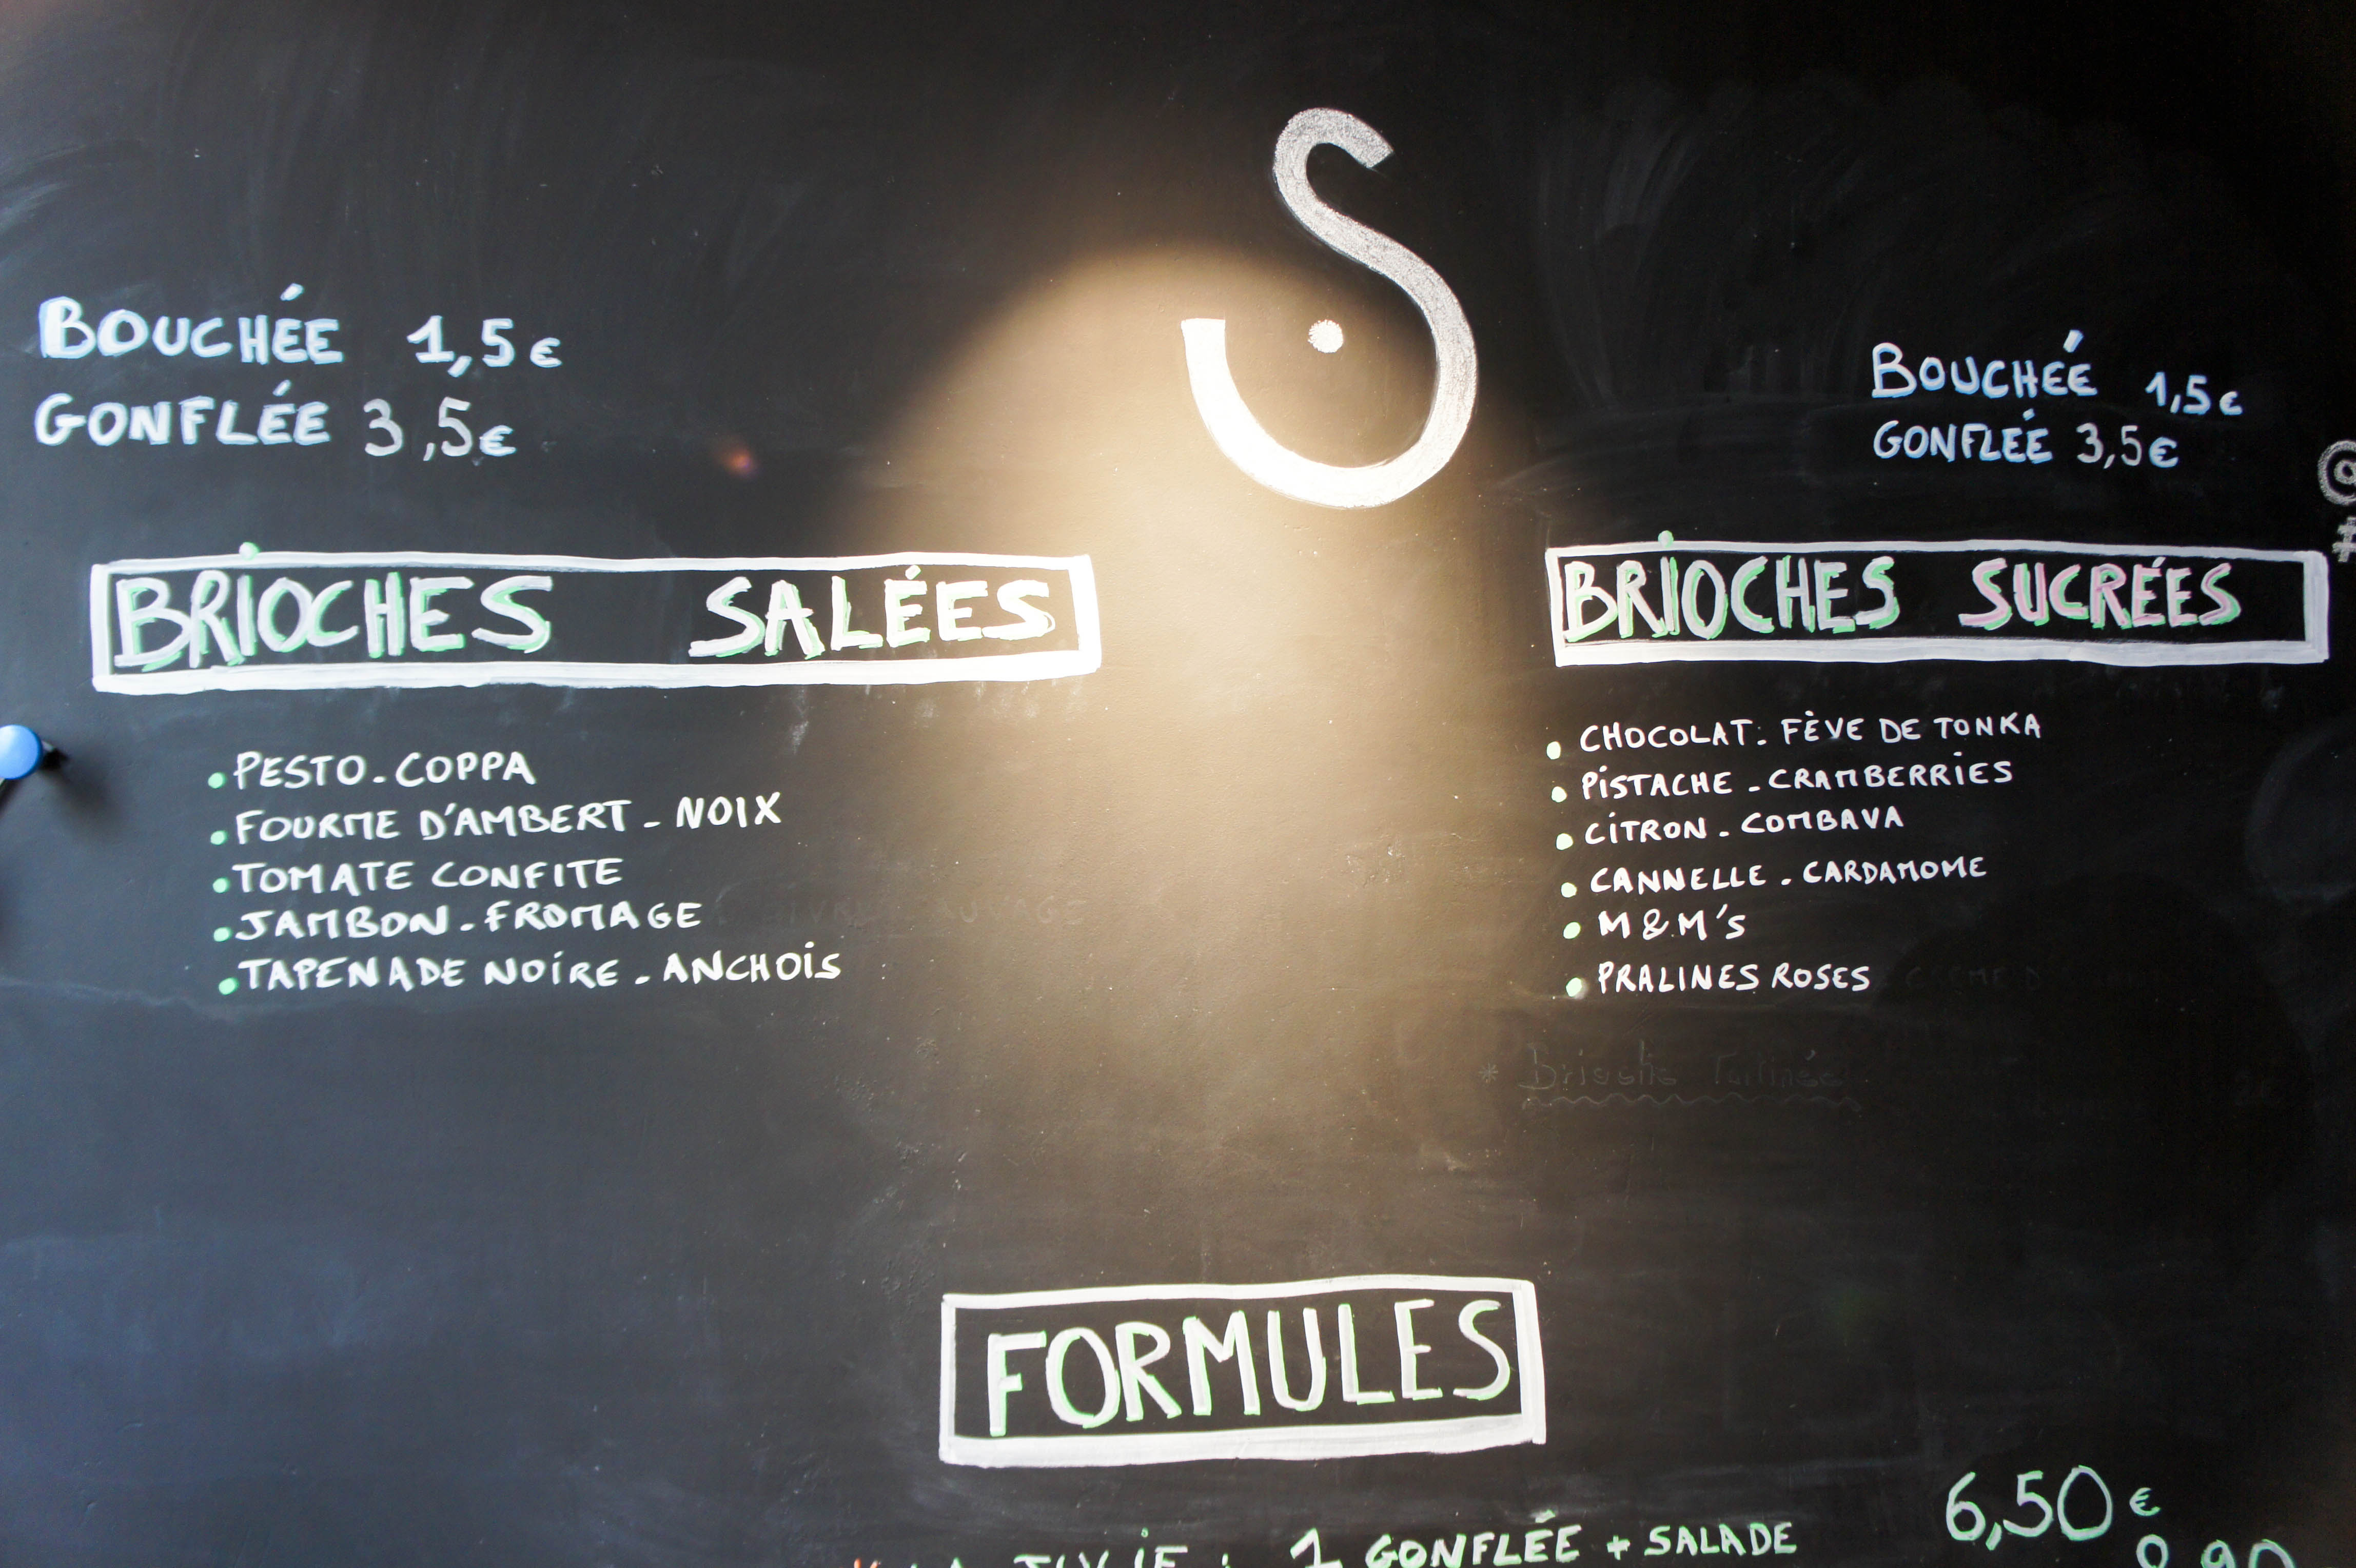 S
BOUCHÉE 1,5€
GONFLÉE 3,5€
BRIOCHES SALÉES
• PESTO - COPPA
• FOURME D'AMBERT - NOIX
• TOMATE CONFITE
• JAMBON - FROMAGE
• TAPENADE NOIRE - ANCHOIS
BOUCHÉE 1,5€
GONFLÉE 3,5€
@
BRIOCHES SUCRÉES
• CHOCOLAT - FÈVE DE TONKA
• PISTACHE - CRAMBERRIES
• CITRON - COMBAVA
• CANNELLE - CARDAMOME
• M&M's
• PRALINES ROSES
FORMULES
: 1 GONFLÉE + SALADE 6,50€